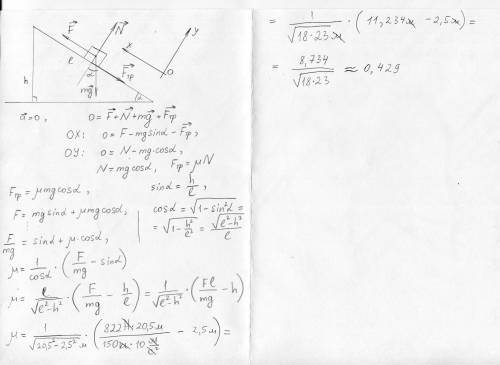 y
F⃗ N⃗ x
h l α F⃗тр O
mg⃗ α
a⃗=0, 0=F⃗+N⃗+mg⃗+F⃗тр
OX: 0=F-mgsinα-F⃗тр,
OY: 0=N-mg·cosα,
N=mgcosα, Fтр=μN
Fтр=μmgcosα, sinα=h/l,
F=mgsinα+μmgcosα, cosα=√(1-sin²α)=
F/mg=sinα+μ·cosα, =√(1-h²/l²)=√(l²-h²)/l
μ=1/cosα·(F/mg-sinα)
μ=l/√(l²-h²)·(F/mg-h/l)=1/√(l²-h²)·(Fl/mg-h)
μ=1/√(20,5²-2,5²)м·(822Н·20,5м/150кг·10м/с²-2,5м)=
=1/√(18·23)м·(11,234м-2,5м)=
=8,734/√(18·23)≈0,429